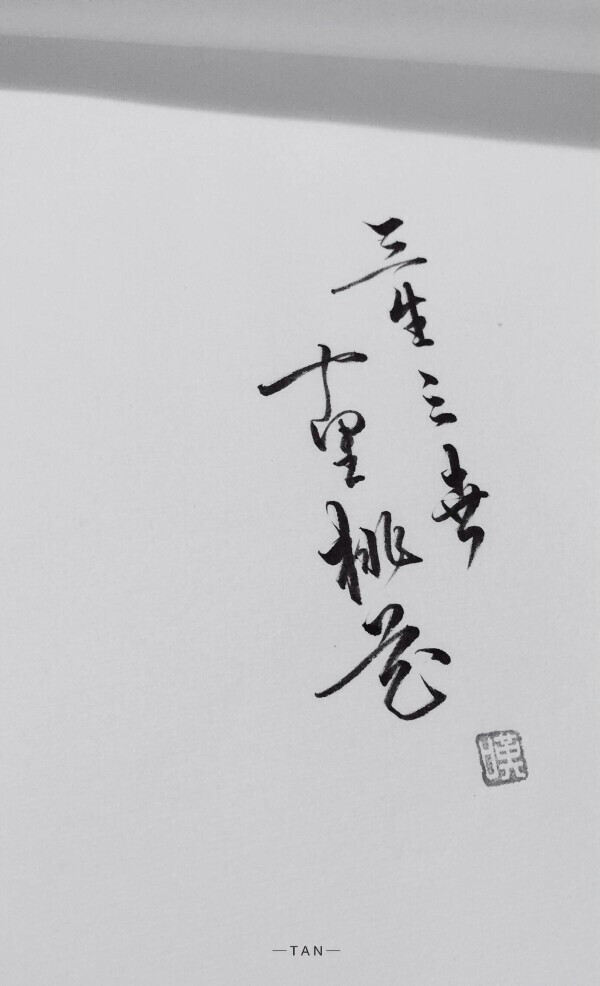 三生三世
十里桃花
—TAN—